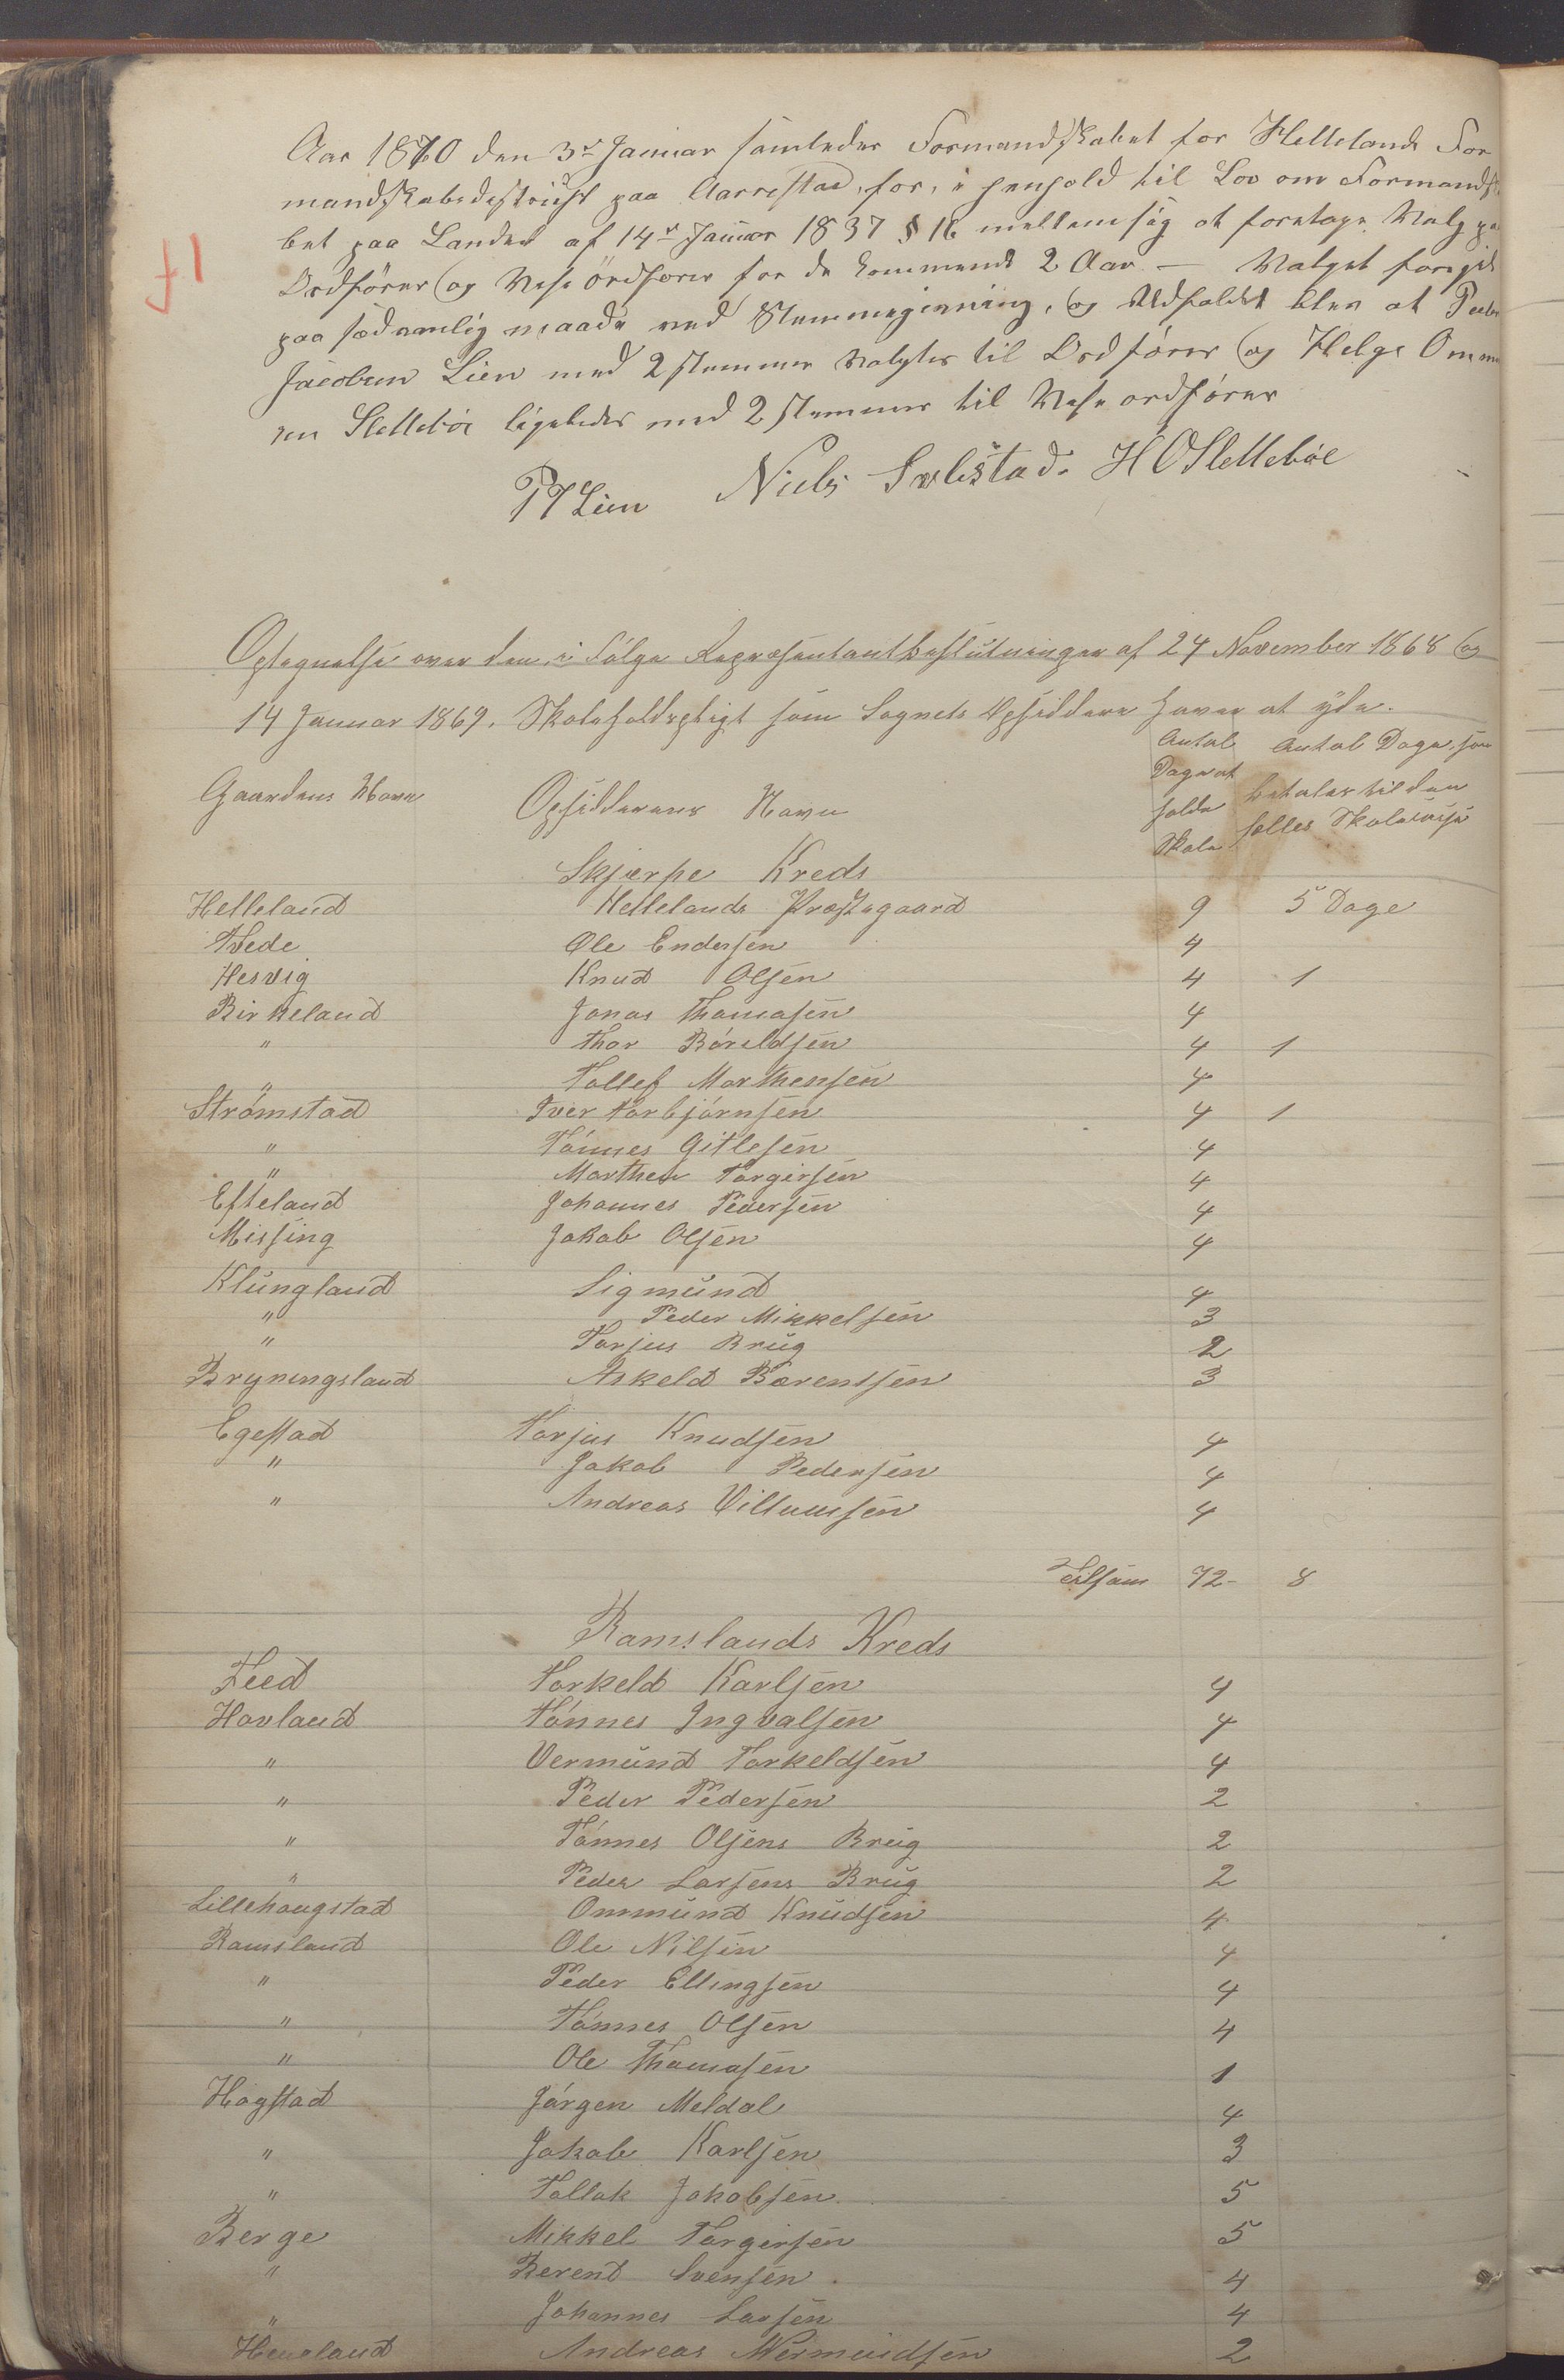 Aar 1870 den 3de Januar samledes Formandskabet for Hellelands For
mandskabsdistrict paa Aarrestad, for, i henhold til Lov om Formandska
bet paa Landet af 14de Januar 1837 § 16 mellem sig at foretage Valg paa
Ordfører og Vise ordfører for de kommende 2 Aar — Valget foregik
paa sædvanlig maade ved Stemmegivning, og Udfaldet blev at Peder
Jacobsen Lien med 2 stemmer valgtes til Ordfører og Helge Omm
sen Slettebøe ligeledes med 2 stemmer til Vise ordfører
PJLien Niels Svelestad. H O Slettebøe
Optegnelse over den, i Følge Repræsentantbeslutninger af 24 November 1868 og
14 Januar 1869, Skoleholdspligt som Sognets Opsiddere haver at yde.
Gaardens Navn Opsidderens Navn Antal Dage at holde Skole Antal Dage, som betales til den fælles Skolekasse
Skjerpe Kreds
Helleland Hellelands Præstegaard 9 5 Dage
Tvede Ole Endersen 4
Hesvig Knud Olsen 4 1
Birkeland Jonas Thomasen 4
" Thor Bóreldsen 4 1
" Tollef Morthensen 4
Strómstad Iver Torbjórnsen 4 1
" Tónnes Gitlesen 4
" Morthen Torgersen 4
Efteland Johannes Pedersen 4
Missing Jakob Olsen 4
Klungland Sigmund 4
" Peder Mikkelsen 3
" Torjus Brug 2
Bryningsland Askeld Bærentsen 3
Egestad Torjus Knudsen 4
" Jakob Pedersen 4
" Andreas Villumsen 4
Tilsam 72- 8
Ramslands Kreds
Feed Torkeld Karlsen 4
Hovland Tónnes Ingvalsen 4
" Vermund Torkeldsen 4
" Peder Pedersen 2
" Tónnes Olsens Brug 2
" Peder Larsens Brug 2
Lillehaugstad Ommund Knudsen 4
Ramsland Ole Nilsen 4
" Peder Ellingsen 4
" Tónnes Olsen 4
" Ole Thomasen 1
Hogstad Jórgen Meldal 4
" Jakob Karlsen 3
" Tollak Jakobsen 5
Berge Mikkel Torgersen 5
" Berent Svensen 4
" Johannes Larsen 4
Andreas Vermundsen 2